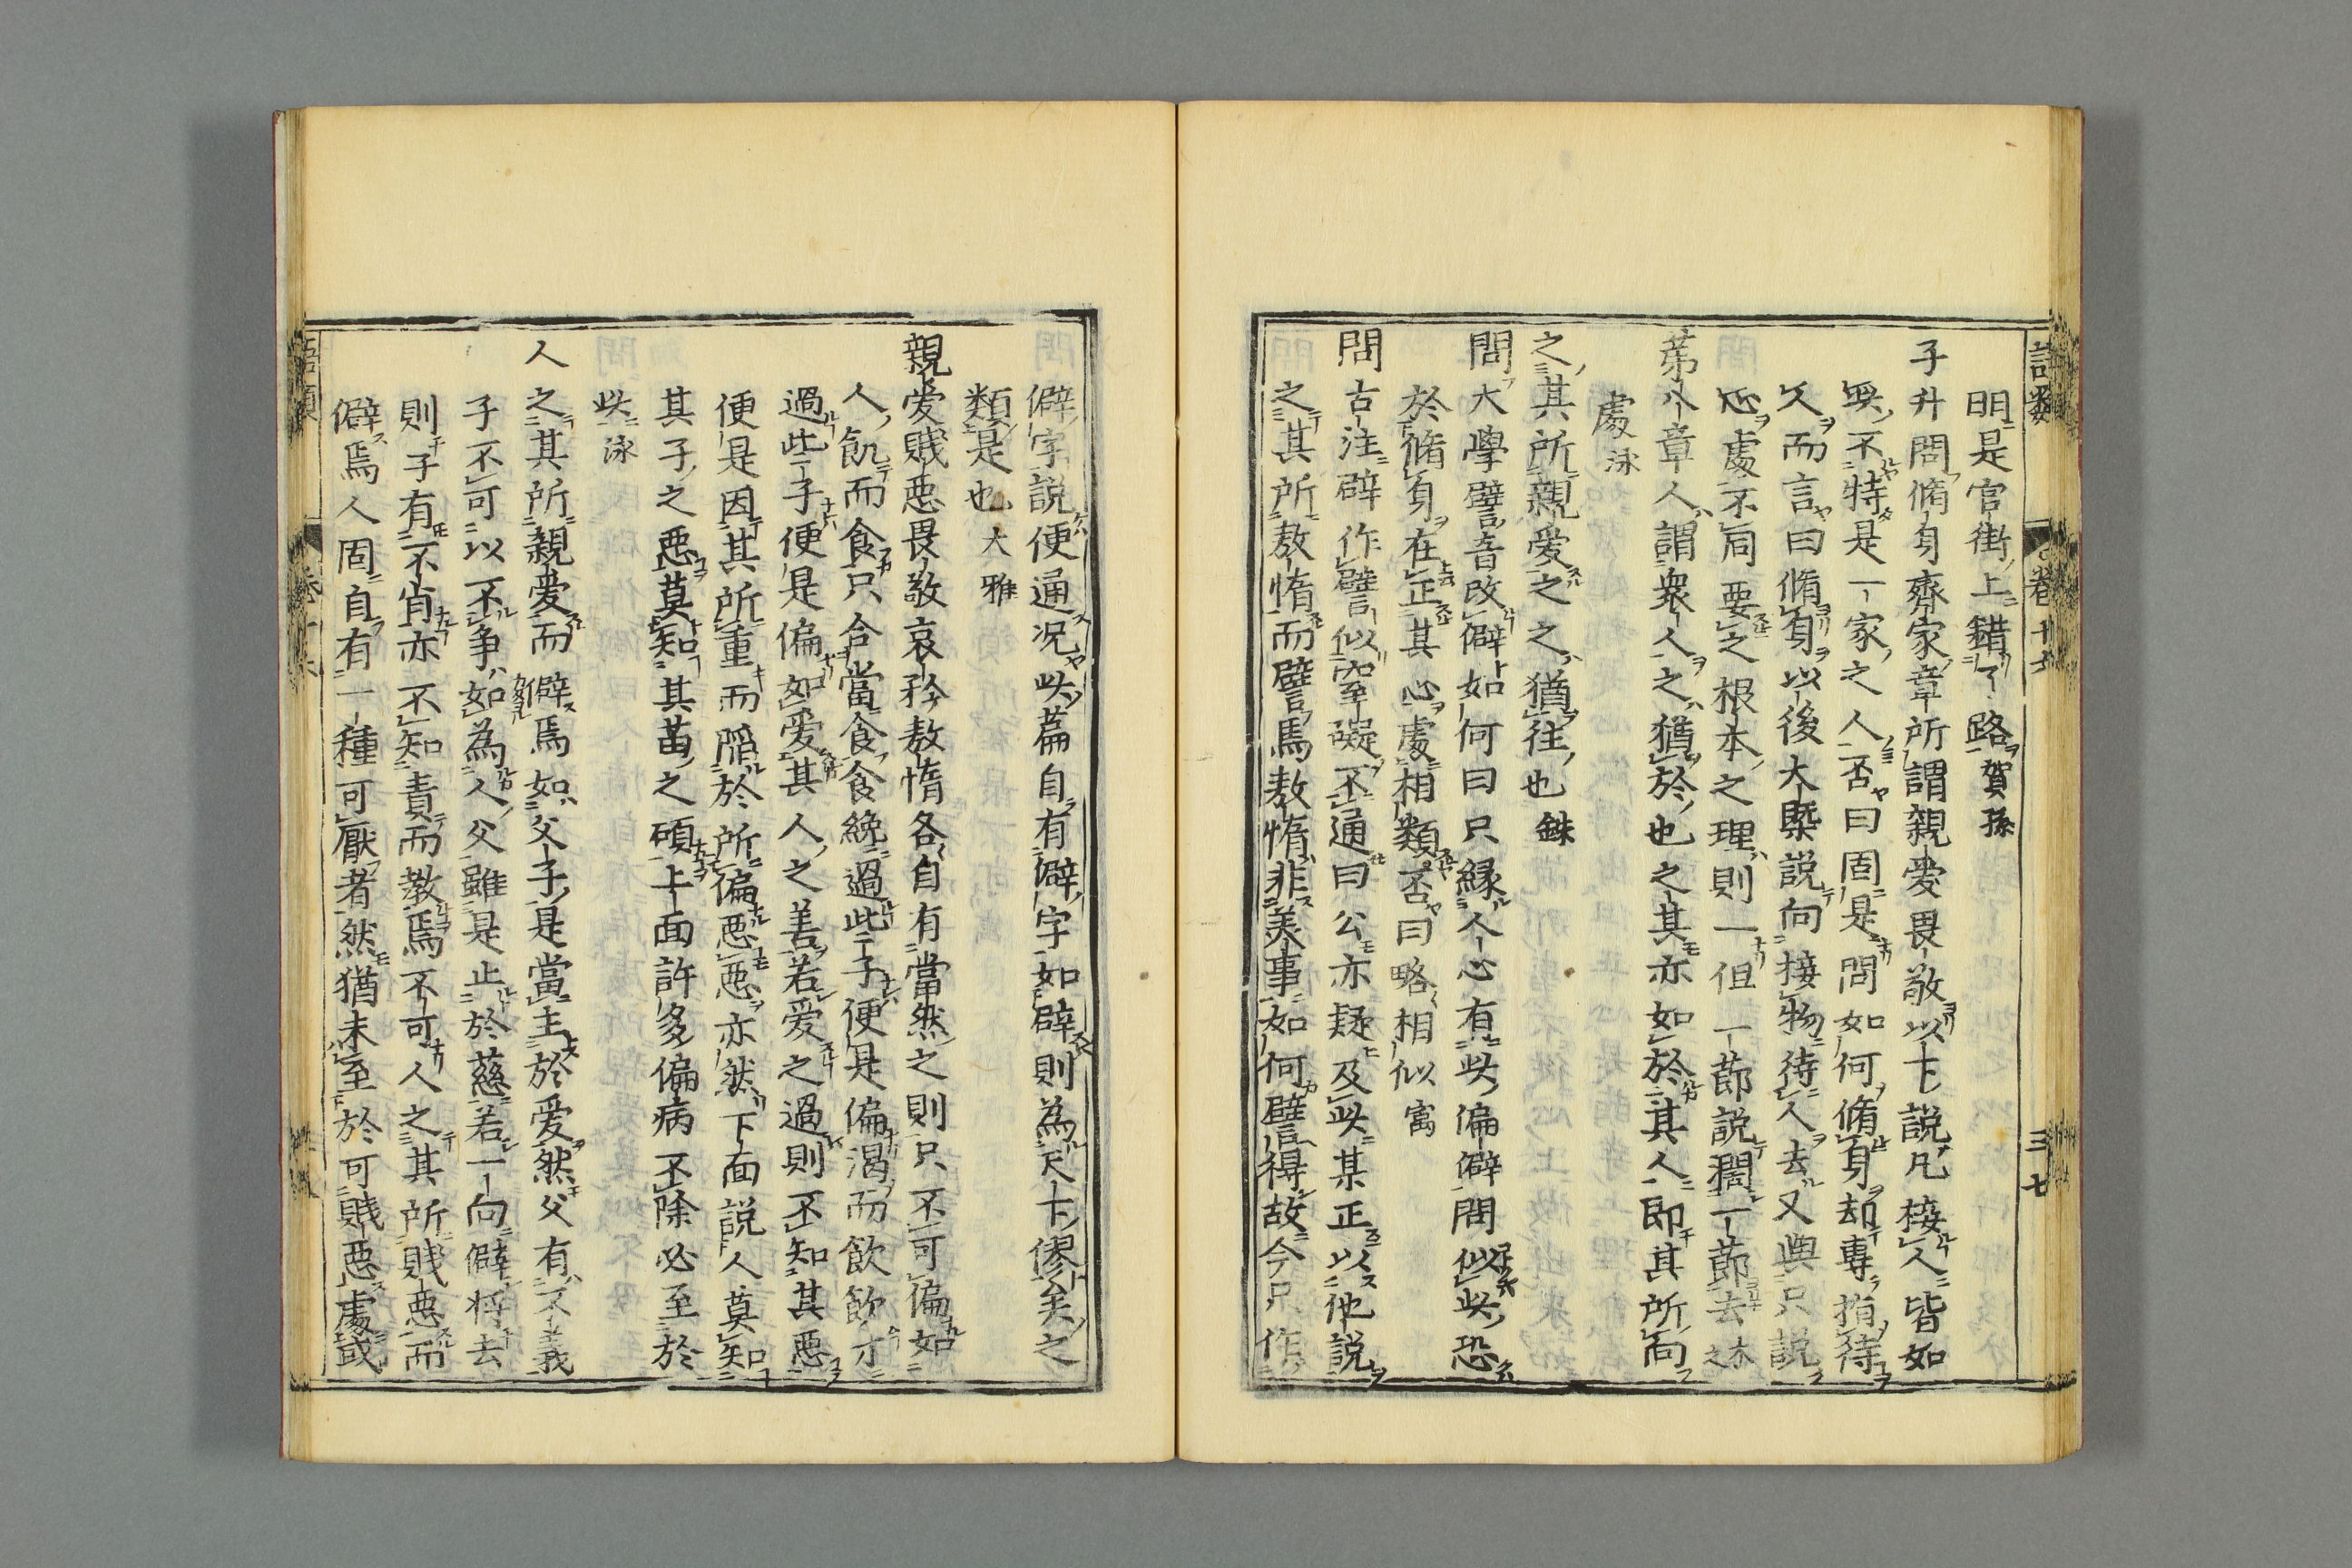 語類
卷十六
三七
明是官街上錯了路賀孫
子升問脩身齊家章所謂親愛畏敬以下說凡接人皆如
此不特是一家之人否曰固是問如何脩身却專指待
人而言曰脩身以後大槩說向接物待人去又與只說
心處不同要之根本之理則一但一節說闊一節去木之
第八章人謂衆人之猶於也之其亦如於其人即其所向
處泳
之其所親愛之之猶往也銖
問大學譬音改僻如何曰只緣人心有此偏僻問似此恐
於脩身在正其心處相類否曰略相似㝢
問古注辟作譬似窒礙不通曰公亦疑及此某正以他說
之其所敖惰而譬焉敖惰非美事如何譬得故今只作
僻字說便通況此篇自有僻字如辟則為天下僇矣之
類是也大雅
親愛賤惡畏敬哀矜敖惰各自有當然之則只不可偏如
人飢而食只合當食食纔過些子便是偏渴而飲飲才
過些子便是偏如愛其人之善若愛之過則不知其惡
便是因其所重而陷於所偏惡惡亦然下面說人莫知
其子之惡莫知其苗之碩上面許多偏病不除必至於
此泳
人之其所親愛而僻焉如父子是當主於愛然父有不義
子不可以不爭如為人父雖是止於慈若一向僻將去
則子有不肖亦不知責而教焉不可人之其所賤惡而
僻焉人固自有一種可厭者然猶未至於可賤惡處或
語類